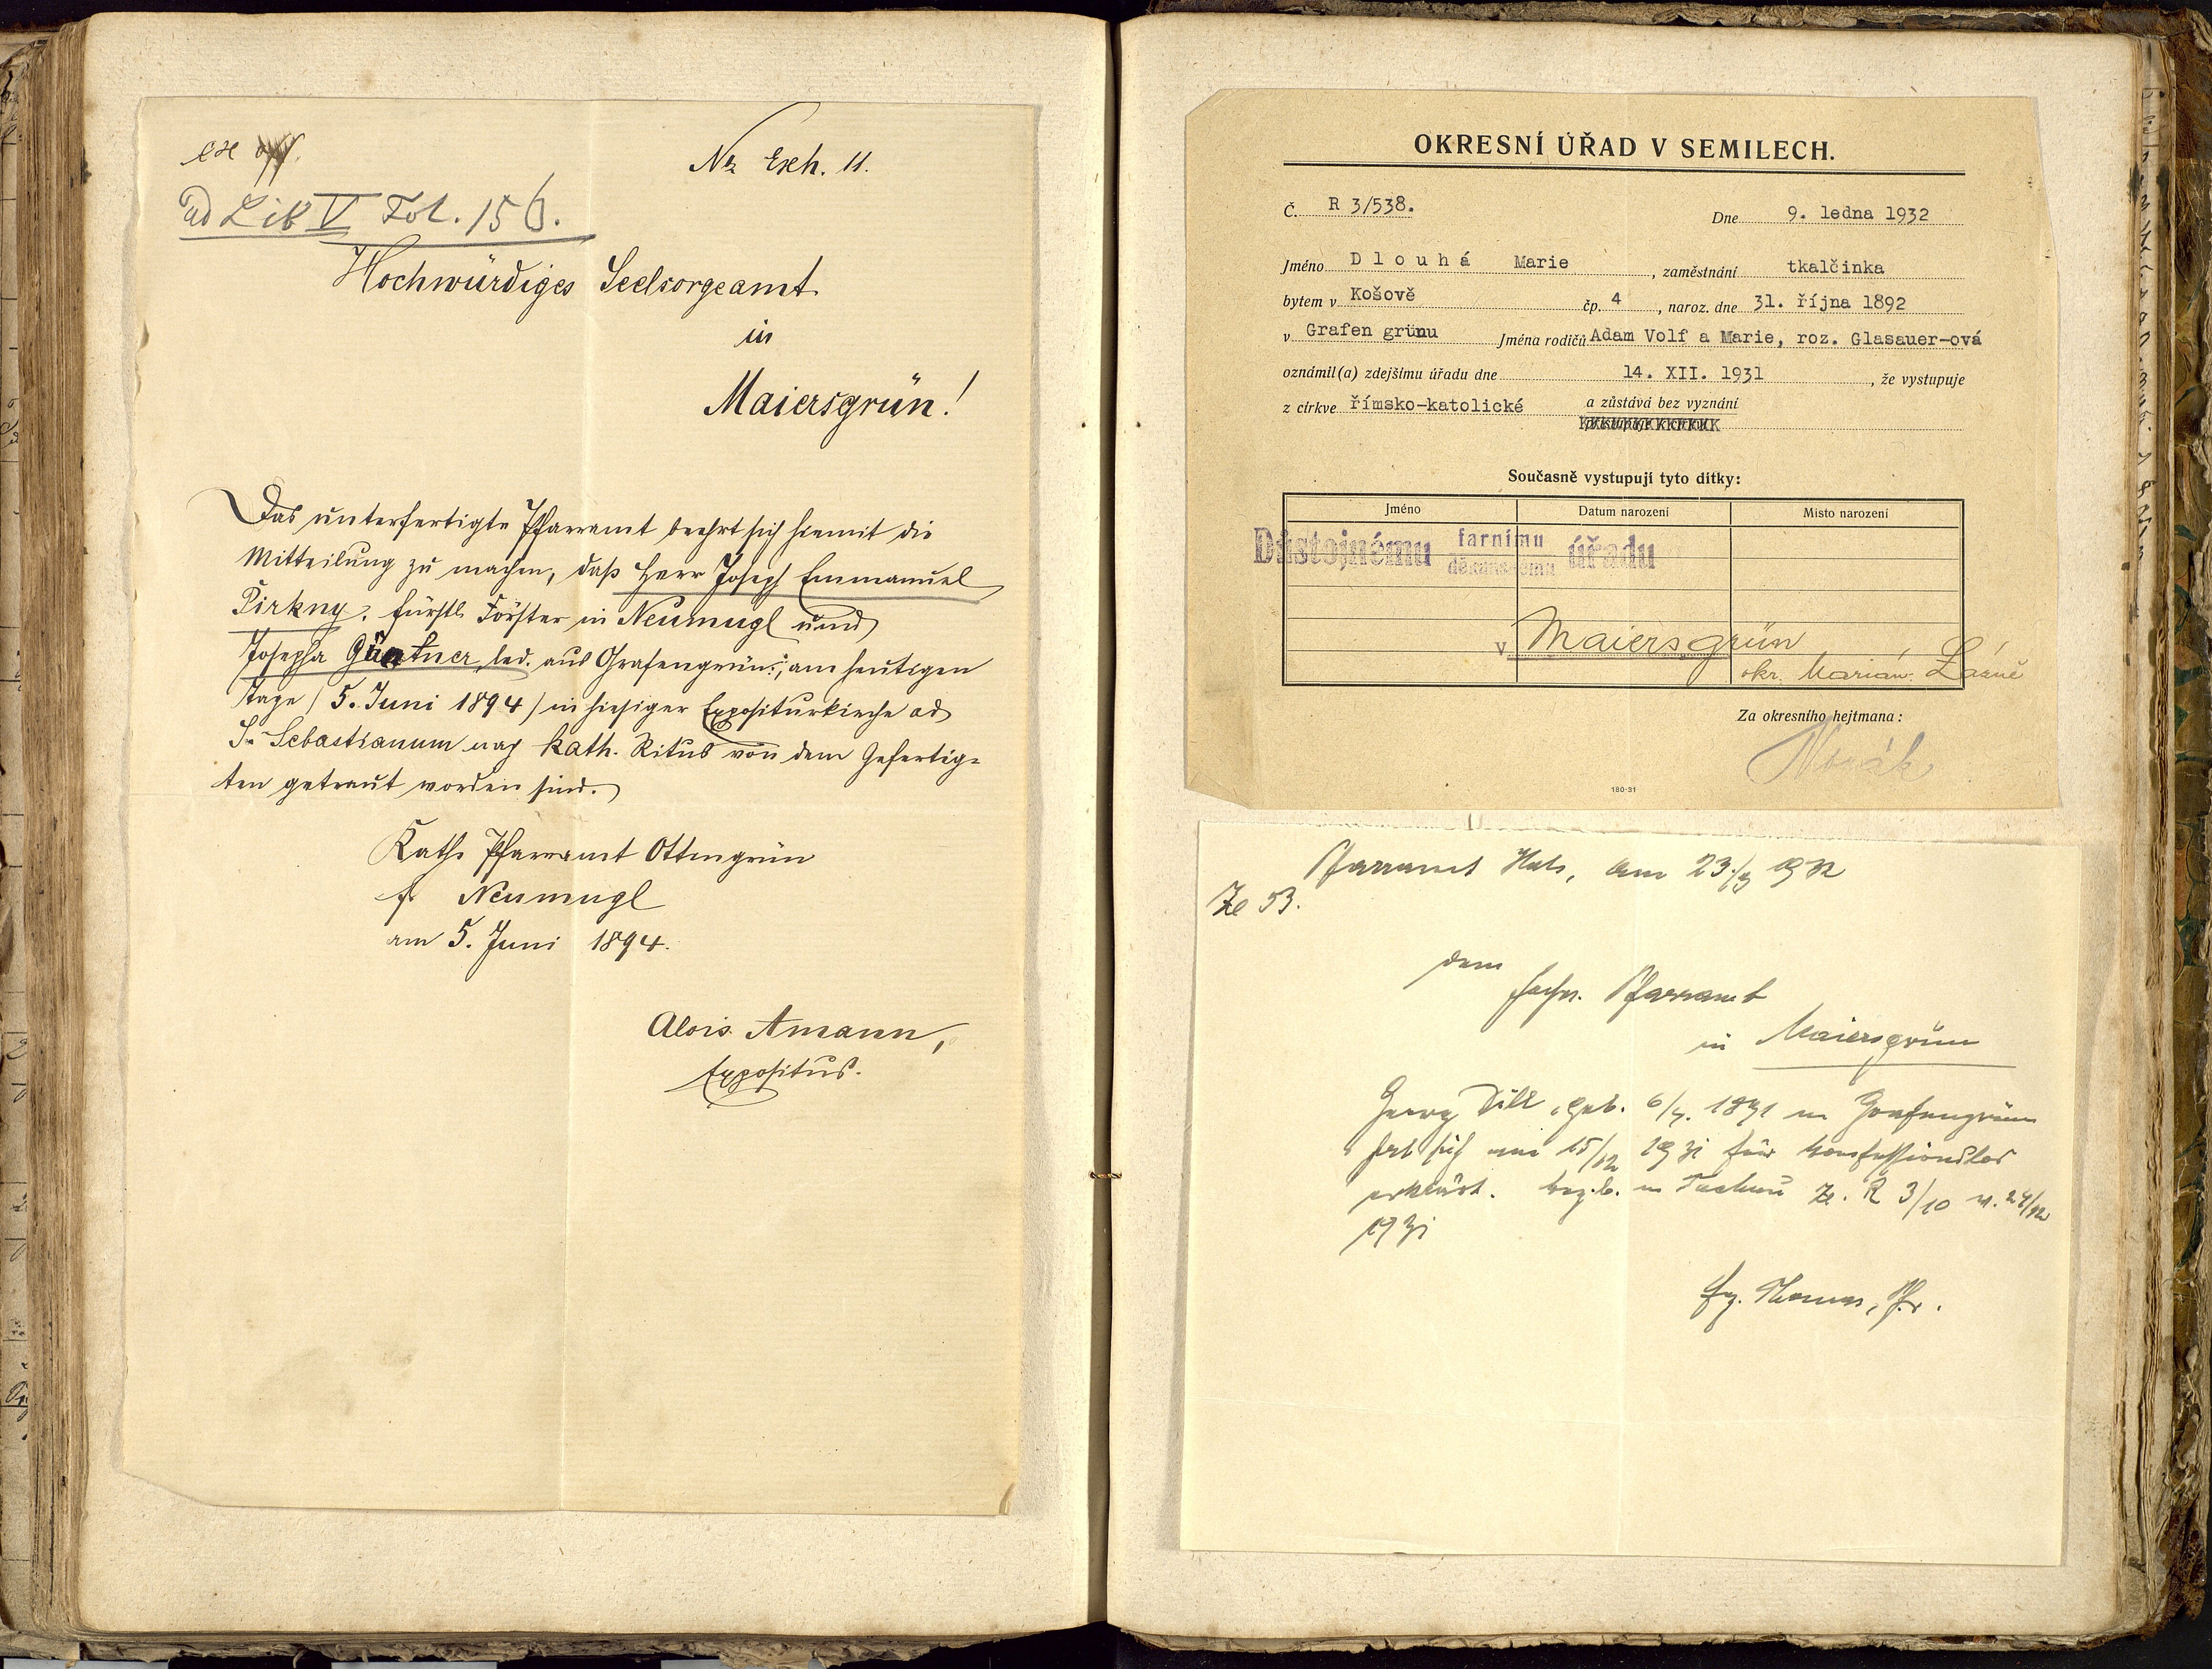 Nr. Exh. 11.
ad Lib V Fol. 156.
Hochwürdiges Seelsorgeamt
in
Maiersgrün!
Das unterfertigte Pfarramt beehrt sich hiemit die
Mitteilung zu machen, daß Herr Joseph Emmanuel
Pirkny, fürstl. Förster in Neumugl und
Josepha Güntner, led. aus Grafengrün, am heutigen
Tage (5. Juni 1894) in hiesiger Expositurkirche ad
S. Sebastianum nach kath. Ritus von dem Gefertig=
ten getraut worden sind.
Kath. Pfarramt Ottengrün
f. Neumugl
am 5. Juni 1894.
Alois Amann,
Expositus.
OKRESNÍ ÚŘAD V SEMILECH.
Č. R 3/538. Dne 9. ledna 1932
Jméno Dlouhá Marie, zaměstnání tkalčinka
bytem v Košově čp. 4, naroz. dne 31. října 1892
v Grafen grünu Jména rodičů Adam Volf a Marie, roz. Glasauer-ová
oznámil(a) zdejšímu úřadu dne 14. XII. 1931, že vystupuje
z církve římsko-katolické a zůstává bez vyznání
Současně vystupují tyto dítky:
Jméno Datum narození Místo narození
Důstojnému farnímu děkanskému úřadu
v Maiersgrün
okr. Marián. Lázně
Za okresního hejtmana:
Novák
180-31
Pfarramt Hals, am 23/3 1932
Ze 53.
dem
hochw. Pfarramt
in Maiersgrün
Georg Dill, geb. 6/7. 1871 in Grafengrün
hat sich am 15/12 1931 für konfessionslos
erklärt. Bez. b. in Tachau Ze. R 3/10 v. 24/12
1931
Pfr.